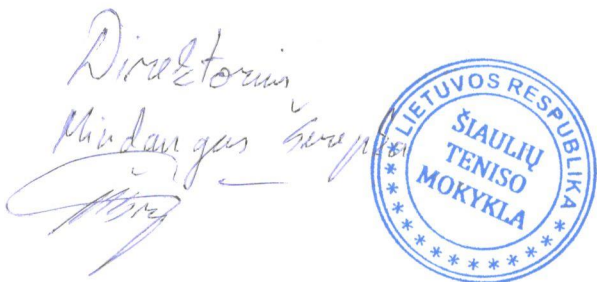 Direktorius
Mindaugas
LIETUVOS RESPUBLIKA
ŠIAULIŲ
TENISO
MOKYKLA